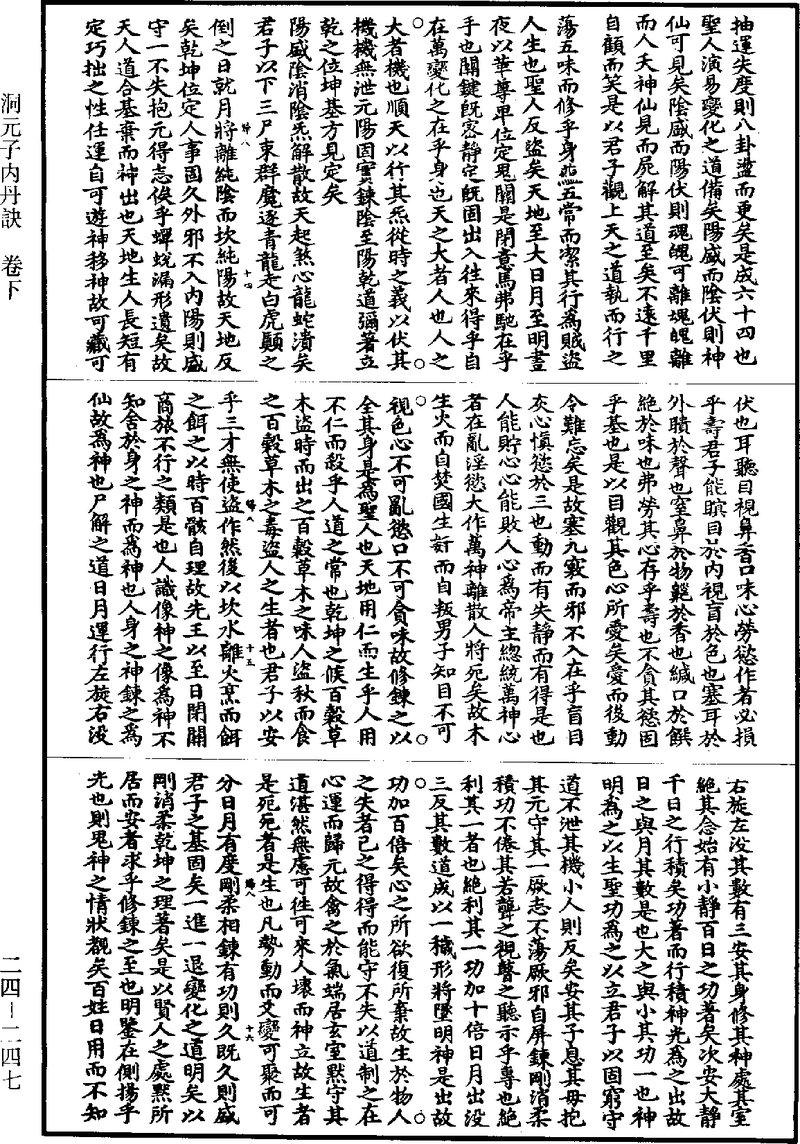 洞元子內丹訣　卷下
二四－二四七
抽運失度則八卦盪而更矣是成六十四也
聖人演易變化之道備矣陽盛而陰伏則神
仙可見矣陰盛而陽伏則魂魄可離魂魄離
而人夭神仙見而屍解其道至矣不遠千里
自顧而笑是以君子觀上天之道執而行之
蕩五味而修乎身㷔五常而潔其行為賊盜
人生也聖人反盜矣天地至大日月至明晝
夜以華尊卑位定鬼關是閉意馬弗馳在乎
乎也關鍵旣密靜定旣固出入往來得乎自
在萬變化之在乎身也天之大者人也人之
○　○
大者機也順天以行其炁從時之義以伏其
機機無泄元陽固實鍊陰至陽乾道彌著立
乾之位坤基方見定矣
陽盛陰消陰炁解散故天起煞心龍蛇潰矣
君子以下三尸束群魔逐青龍走白虎顛之
倒之日就月將離純陰而坎純陽故天地反
歸八　十四
矣乾坤位定人事固久外邪不入內陽則盛
守一不失抱元得志俟乎蟬蛻漏形遺矣故
天人道合基棄而神出也天地生人長短有
定巧拙之性任運自可遊神移神故可藏可
伏也耳聽目視鼻香口味心勞慾作者必損
乎壽君子能瞚目於內視盲於色也塞耳於
外聵於聲也窒鼻於物齆於香也緘口於饌
絕於味也弗勞其心存乎壽也不貪其慾固
乎基也是以目觀其色心所愛矣愛而後動
令難忘矣是故塞九竅而邪不入在乎盲目
灰心慎慾於三也動而有失靜而有得是也
人能貯心心能敗人心為帝主總統萬神心
者在亂淫慾大作萬神離散人將死矣故木
生火而自焚國生奸而自叛男子知目不可
○　○
視色心不可亂慾口不可貪味故修鍊之以
全其身是為聖人也天地用仁而生乎人用
不仁而殺乎人道之常也乾坤之候百穀草
木盜時而出之百穀草木之味人盜秋而食
之百穀草木之毒盜人之生者也君子以安
歸八　十五
乎三才無使盜作然後以坎水離火烹而餌
之餌之以時百骸自理故先王以至日閉關
商旅不行之類是也人識像神之像為神不
知舍於身之神而為神也人身之神鍊之為
仙故為神也尸解之道日月運行左旋右没
右旋左没其數有三安其身修其神處其室
絕其念始有小靜百日之功著矣次安大靜
千日之行積矣功著而行積神光為之出故
日之與月其數是也大之與小其功一也神
明為之以生聖功為之以立君子以固窮守
道不泄其機小人則反矣安其子息其母抱
其元守其一厥志不蕩厥邪自屏鍊剛消柔
積功不倦其若聾之視瞽之聽示乎專也絕
利其一者也絕利其一功加十倍日月出没
三反其數道成以一穢形將墜明神是出故
○　○
功加百倍矣心之所欲復所棄故生於物人
之失者己之得得而能守不失以道制之在
心運而歸元故禽之於氣端居玄室默守其
道湛然無慮可往可來人壞而神立故生者
是死死者是生也凡勢動而爻變可聚而可
歸八　十六
分日月有度剛柔相鍊有功則久既久則盛
君子之基固矣一進一退變化之道明矣以
剛消柔乾坤之理著矣是以賢人之處黙所
居而安者求乎修鍊之至也明鑒在側揚乎
光也則鬼神之情狀覩矣百姓日用而不知